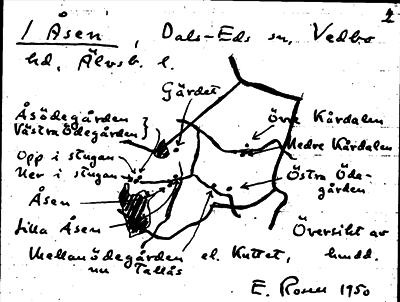 2
1 Åsen, Dals-Eds sn, Vedbo
hd, Älvsb. l.
Gärdet
Åsödegården
Västra Ödegården
Övre Kårdalen
Nedre Kårdalen
Opp i stugan
Ner i stugan
Östra Öde-
gården
Åsen
Lilla Åsen
Översikt av
hmdd.
Mellanödegården el. Kuttet,
nu Tallås
E. Rosell 1950